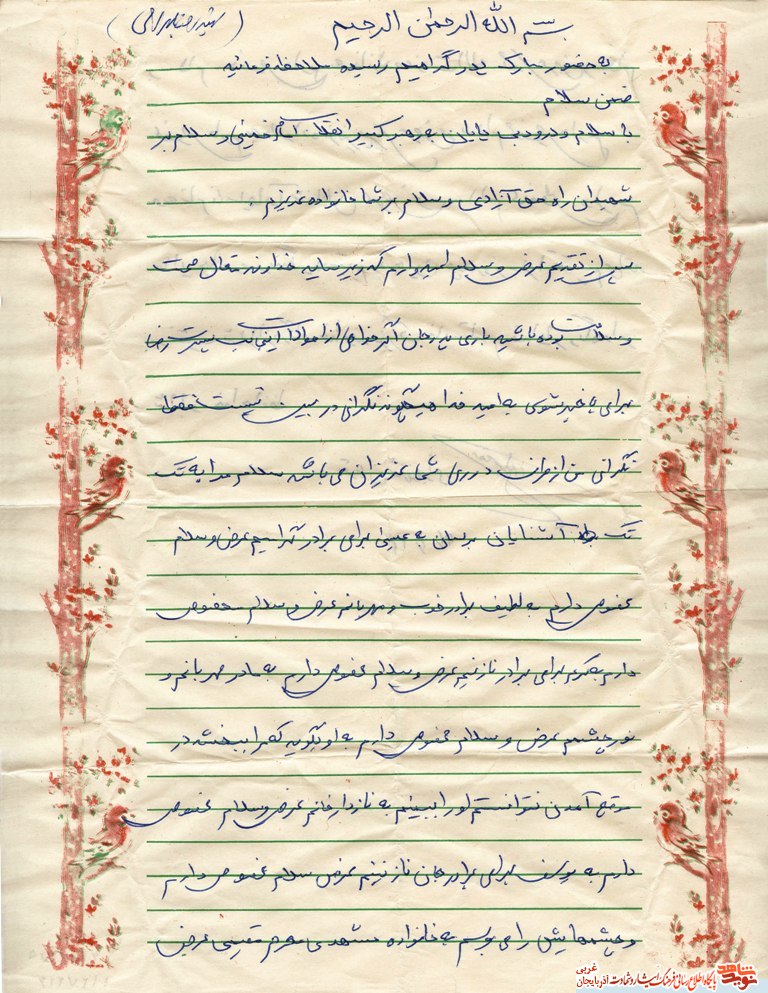 بسم الله الرحمن الرحیم
(شهید رضا بهرامی)
به حضور مبارک پدر گرامیم رسیده ملاحظه فرمائید
ضمن سلام
با سلام و درود بی پایان به رهبر کبیر انقلاب امام خمینی و سلام بر
شهیدان راه حق آزادی و سلام بر شما خانواده عزیزم .
پس از تقدیم عرض و سلام امیدوارم که زیر سایه خداوند متعال صحت
و سلامت بوده باشید باری پدر جان اگر خواهی از احوالات اینجانب پسرت رضا
بهرامی با خبر بشوی به امید خدا هیچگونه نگرانی در بین نیست فقط
نگرانی من از دوری شما عزیزان می باشد سلام مرا به تک
تک آشنایان برسان به عیسی بهرامی برادر گرامیم عرض و سلام
مخصوص دارم به لطیف برادر خوب و مهربانم عرض و سلام مخصوص
دارم به کرم بهرامی برادر نازنینم عرض و سلام مخصوص دارم به مادر مهربانم و
نور چشمم عرض و سلام مخصوص دارم به او بگوید که مرا ببخشد در
موقع آمدن نتوانستم او را ببینم به نازدار خانم عرض و سلام مخصوص
دارم به یوسف بهرامی برادر جان نازنینم عرض سلام مخصوص دارم
و چشمهایش را می بوسم به خانواده مشهدی محرم مقیمی عرض
نوید شاهد
پایگاه اطلاع رسانی فرهنگ ایثار و شهادت آذربایجان غربی